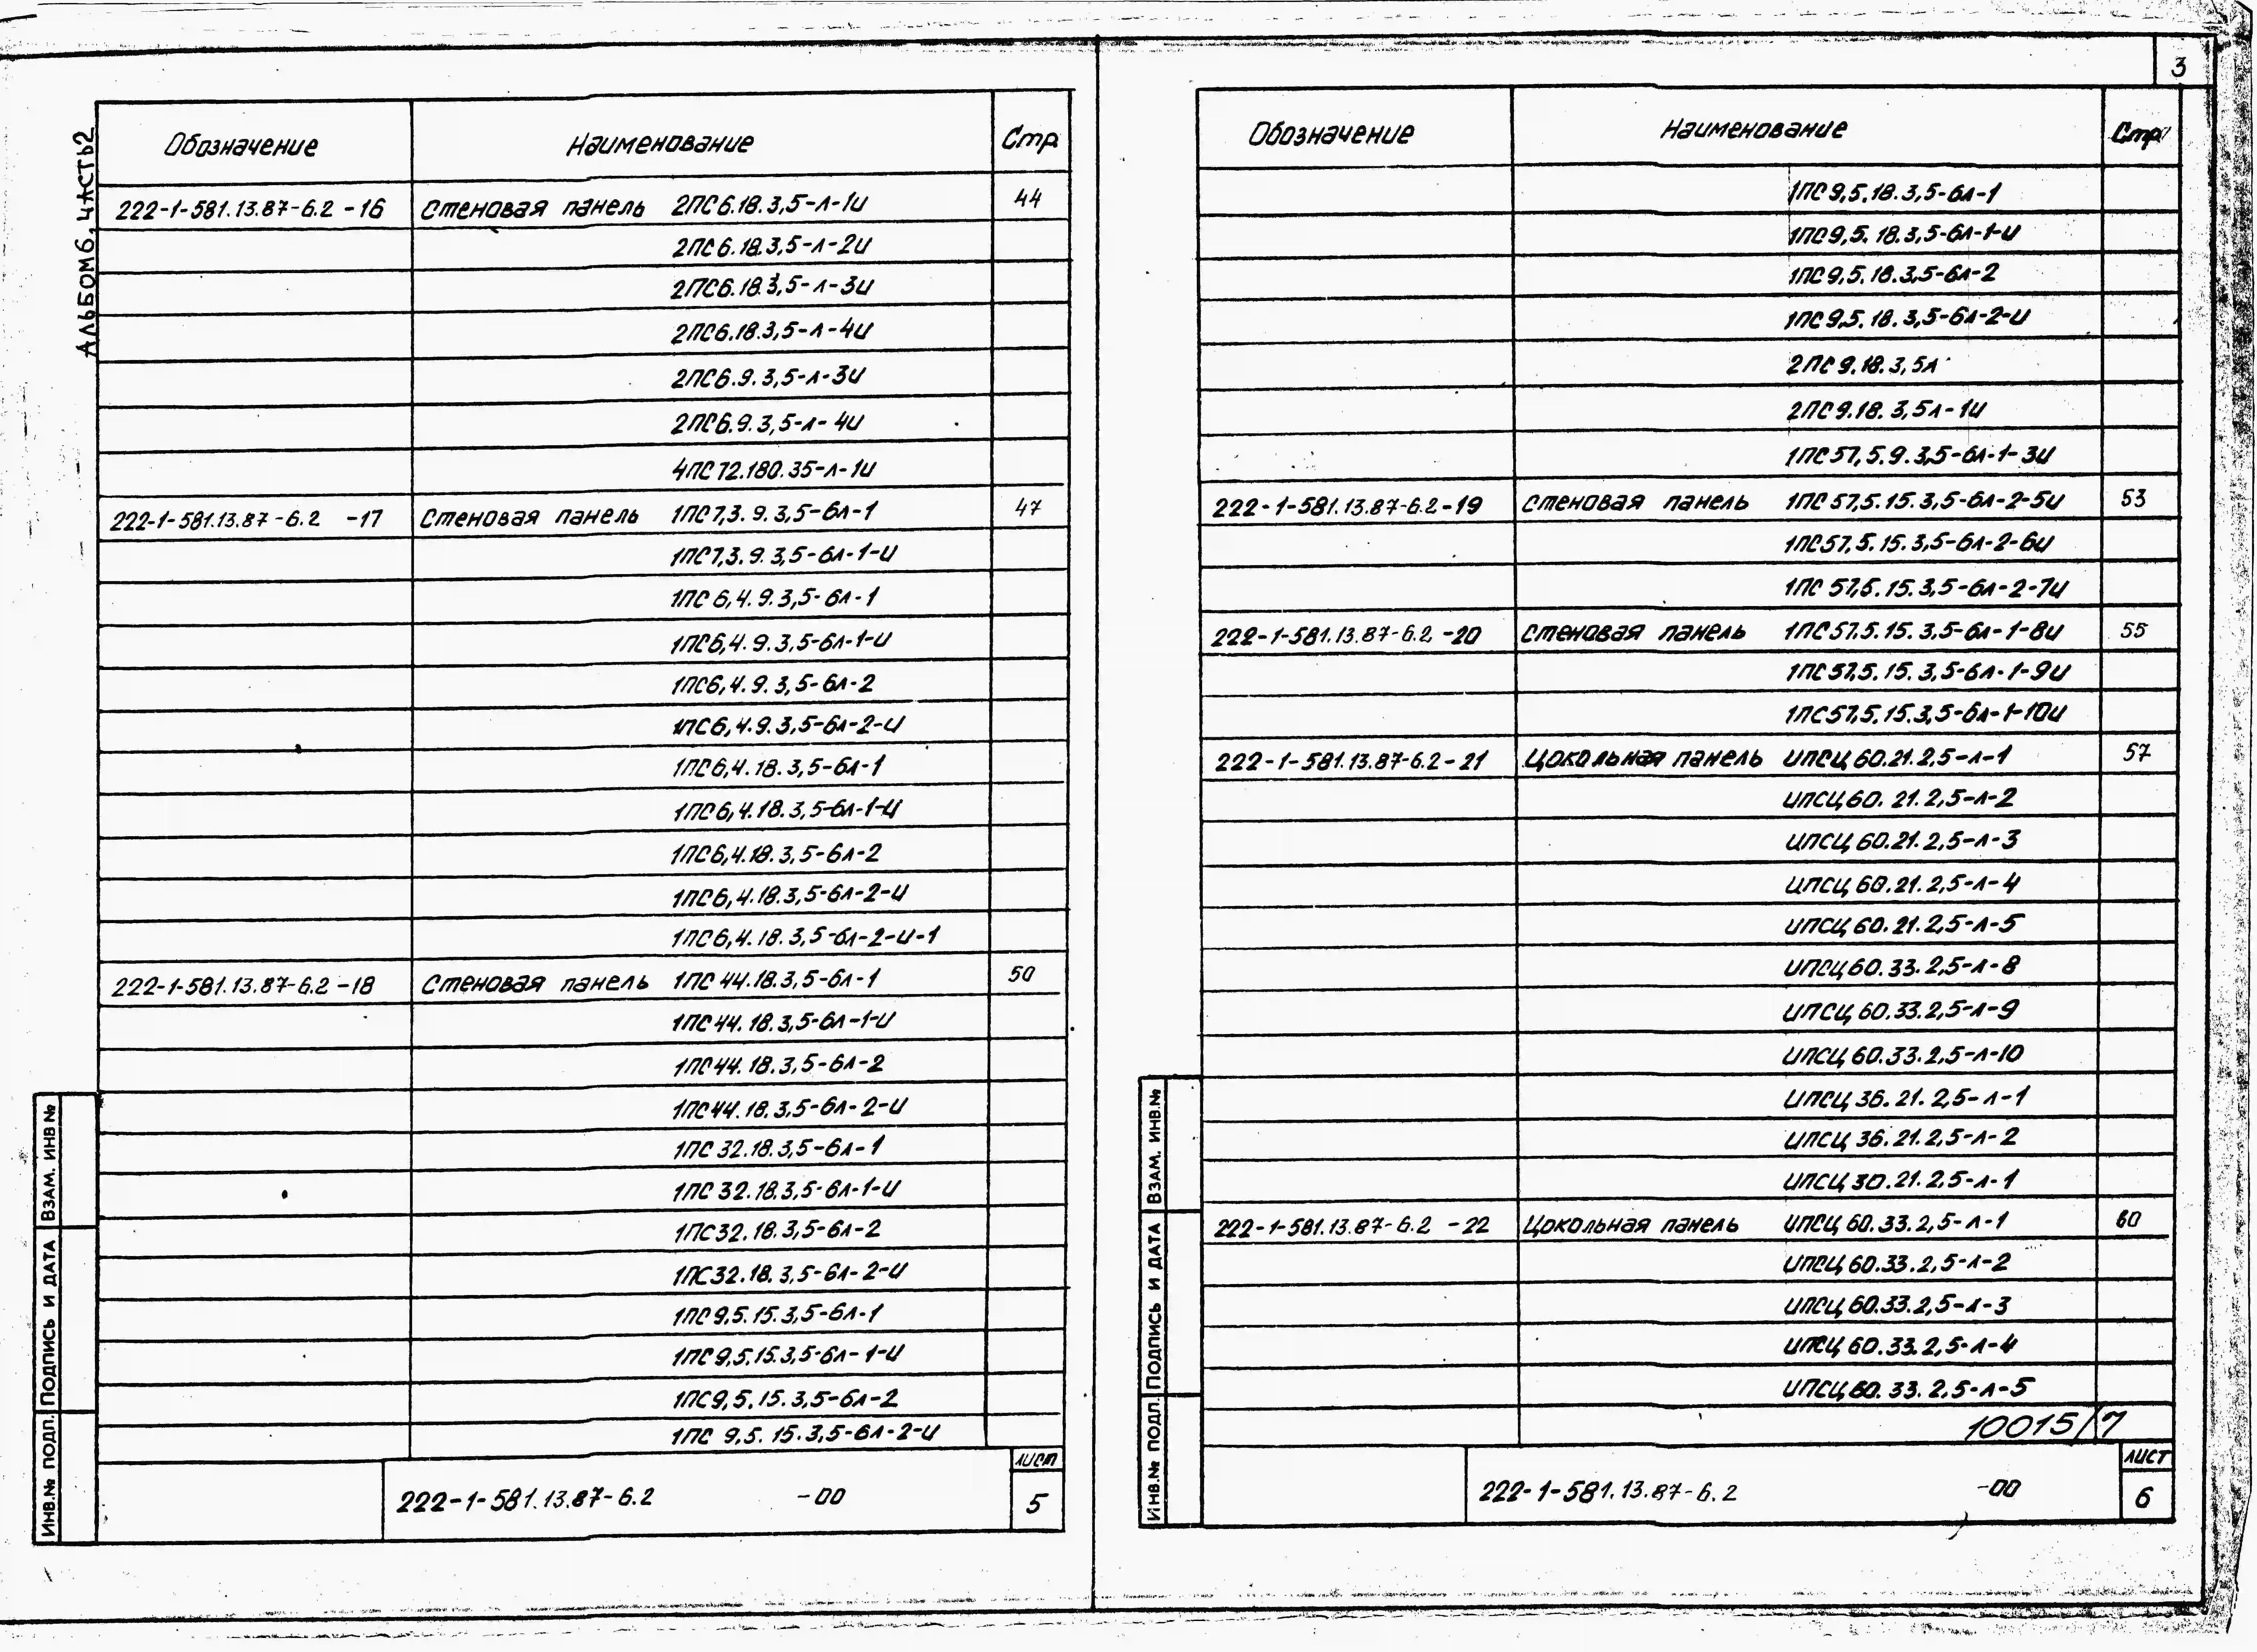 3
Альбом 6, часть 2
Обозначение Наименование Стр.
222-1-581.13.87-6.2 -16 Стеновая панель 2ПС6.18.3,5-л-1и 44
2ПС6.18.3,5-л-2и
2ПС6.18.3,5-л-3и
2ПС6.18.3,5-л-4и
2ПС6.9.3,5-л-3и
2ПС6.9.3,5-л-4и
4ПС72.180.35-л-1и
222-1-581.13.87-6.2 -17 Стеновая панель 1ПС7,3.9.3,5-6л-1 47
1ПС7,3.9.3,5-6л-1-и
1ПС6,4.9.3,5-6л-1
1ПС6,4.9.3,5-6л-1-и
1ПС6,4.9.3,5-6л-2
1ПС6,4.9.3,5-6л-2-и
1ПС6,4.18.3,5-6л-1
1ПС6,4.18.3,5-6л-1-и
1ПС6,4.18.3,5-6л-2
1ПС6,4.18.3,5-6л-2-и
1ПС6,4.18.3,5-6л-2-и-1
222-1-581.13.87-6.2 -18 Стеновая панель 1ПС44.18.3,5-6л-1 50
1ПС44.18.3,5-6л-1-и
1ПС44.18.3,5-6л-2
1ПС44.18.3,5-6л-2-и
1ПС32.18.3,5-6л-1
1ПС32.18.3,5-6л-1-и
1ПС32.18.3,5-6л-2
1ПС32.18.3,5-6л-2-и
1ПС9,5.15.3,5-6л-1
1ПС9,5.15.3,5-6л-1-и
1ПС9,5.15.3,5-6л-2
1ПС 9,5.15.3,5-6л-2-и
222-1-581.13.87-6.2 -00 лист 5
Инв.№ подл. Подпись и дата Взам. инв №
Обозначение Наименование Стр.
1ПС9,5.18.3,5-6л-1
1ПС9,5.18.3,5-6л-1-и
1ПС9,5.18.3,5-6л-2
1ПС9,5.18.3,5-6л-2-и
2ПС9.18.3,5л
2ПС9.18.3,5л-1и
1ПС57,5.9.3,5-6л-1-3и
222-1-581.13.87-6.2-19 Стеновая панель 1ПС57,5.15.3,5-6л-2-5и 53
1ПС57,5.15.3,5-6л-2-6и
1ПС57,5.15.3,5-6л-2-7и
222-1-581.13.87-6.2 -20 Стеновая панель 1ПС57,5.15.3,5-6л-1-8и 55
1ПС57,5.15.3,5-6л-1-9и
1ПС57,5.15.3,5-6л-1-10и
222-1-581.13.87-6.2-21 Цокольная панель ИПСЦ60.21.2,5-л-1 57
ИПСЦ60.21.2,5-л-2
ИПСЦ60.21.2,5-л-3
ИПСЦ60.21.2,5-л-4
ИПСЦ60.21.2,5-л-5
ИПСЦ60.33.2,5-л-8
ИПСЦ60.33.2,5-л-9
ИПСЦ60.33.2,5-л-10
ИПСЦ36.21.2,5-л-1
ИПСЦ36.21.2,5-л-2
ИПСЦ30.21.2,5-л-1
222-1-581.13.87-6.2 -22 Цокольная панель ИПСЦ60.33.2,5-л-1 60
ИПСЦ60.33.2,5-л-2
ИПСЦ60.33.2,5-л-3
ИПСЦ60.33.2,5-л-4
ИПСЦ60.33.2,5-л-5
10015/7
222-1-581.13.87-6.2 -00 лист 6
Инв.№ подл. Подпись и дата Взам. инв.№